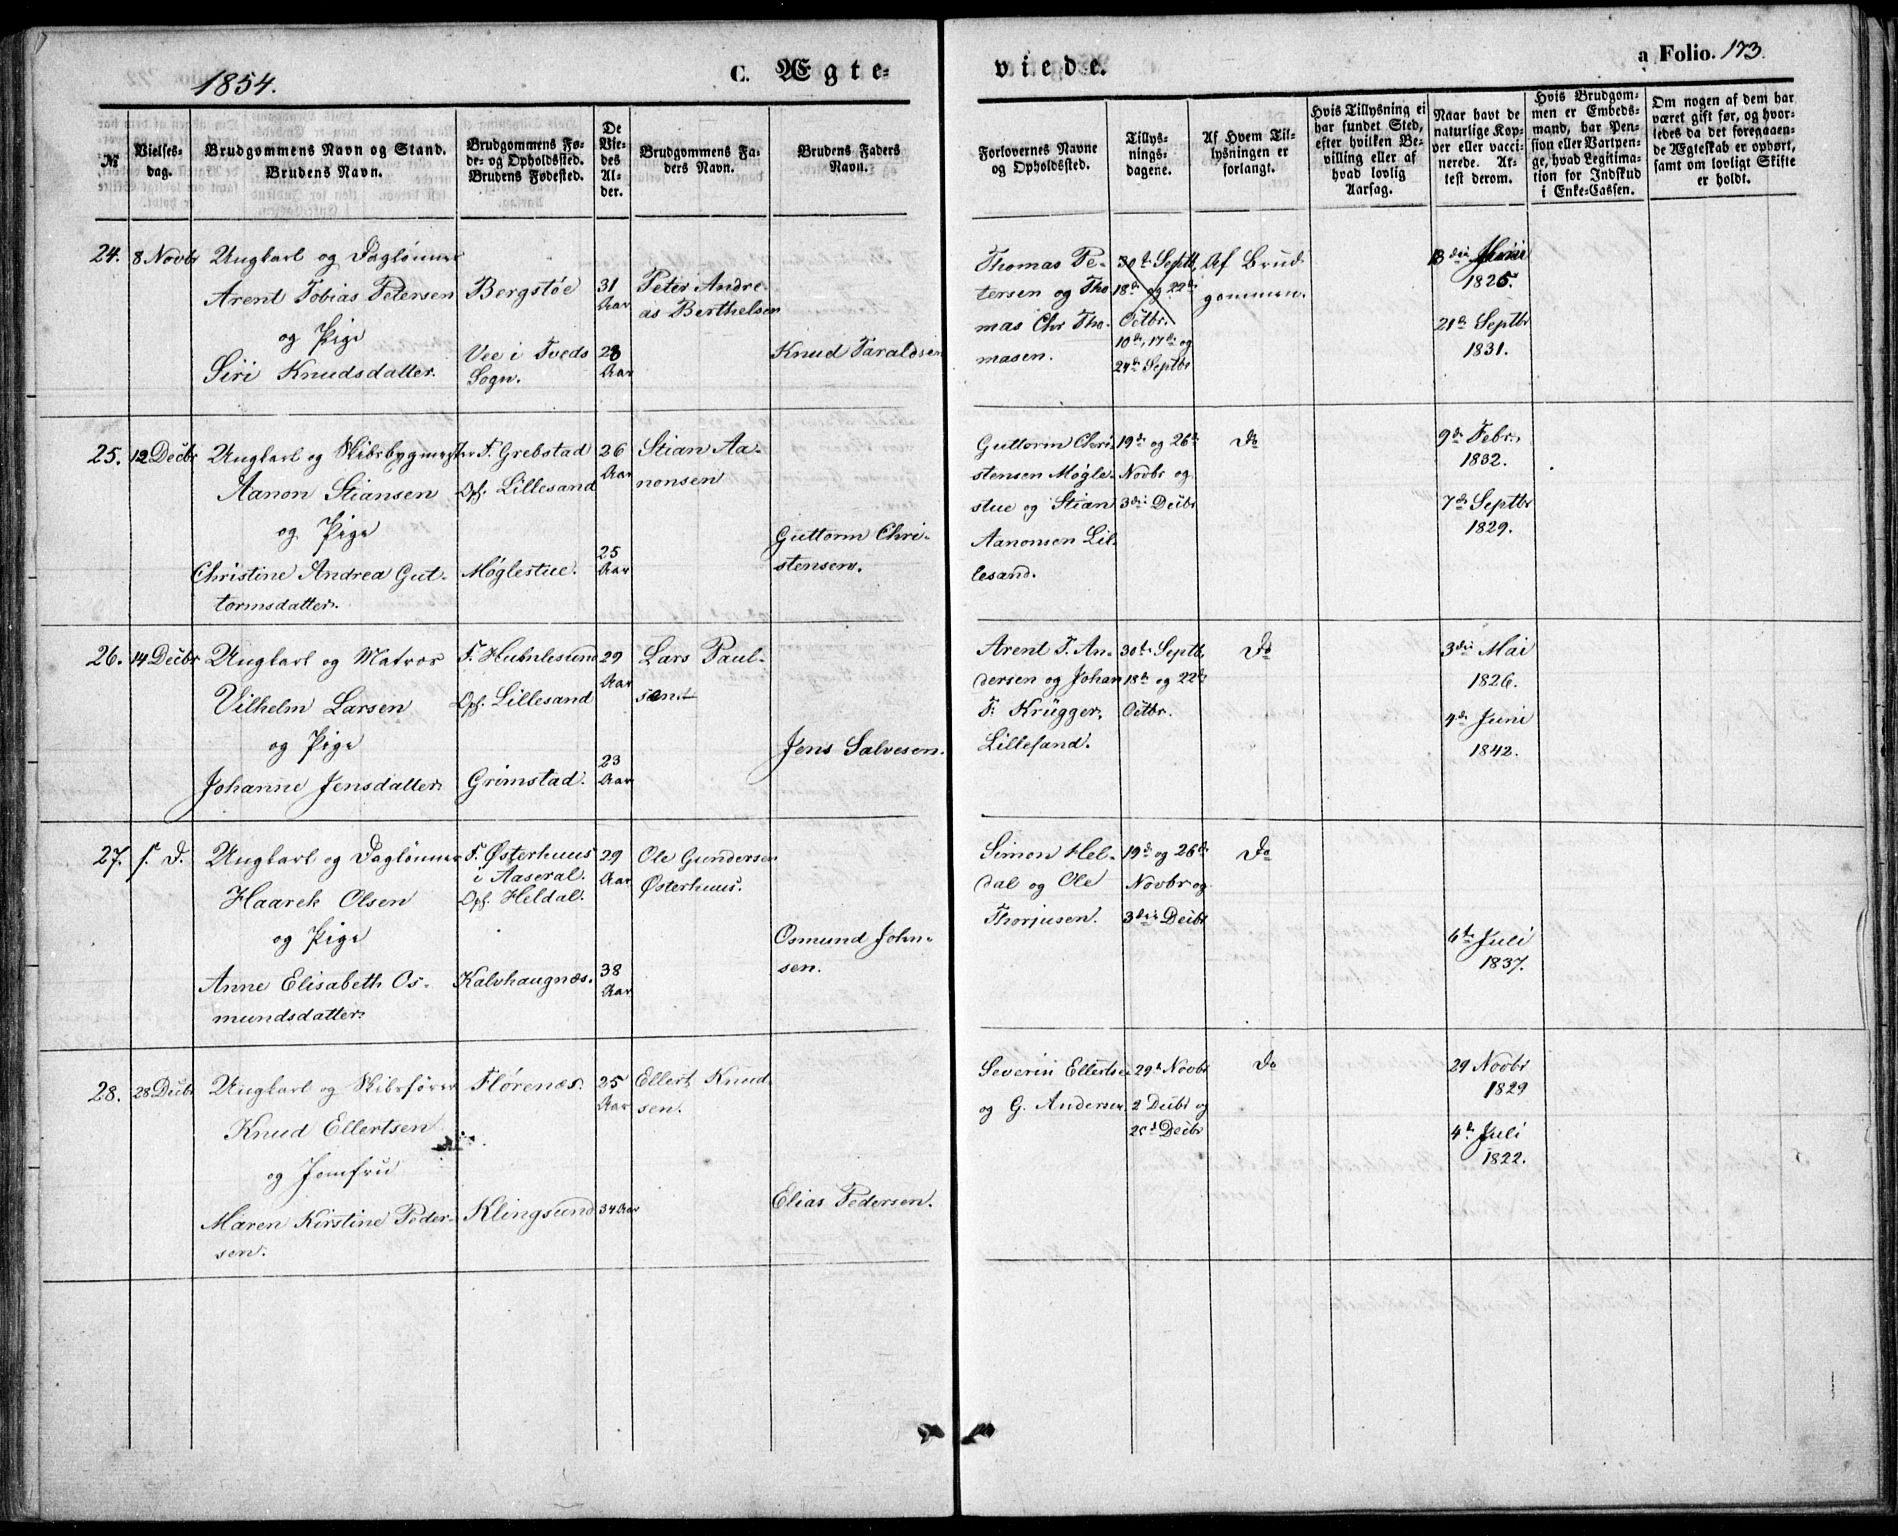 1854.
C. Ægte-
viede.
a Folio. 173.
№
Vielses-
dag.
Brudgommens Navn og Stand.
Brudens Navn.
Brudgommens Fø-
de- og Opholdssted.
Brudens Fødested.
De
Vie-
des
Al-
der.
Brudgommens Fa-
ders Navn.
Brudens Faders
Navn.
Forlovernes Navne
og Opholdssted.
Tillys-
nings-
dagene.
Af Hvem Til-
lysningen er
forlangt.
Hvis Tillysning ei
har fundet Sted,
efter hvilken Be-
villing eller af
hvad lovlig
Aarsag.
Naar havt de
naturlige Kop-
per eller vacci-
nerede. At-
test derom.
Hvis Brudgom-
men er Embeds-
mand, har Pen-
sion eller Vartpen-
ge, hvad Legitima-
tion for Indskud
i Enke-Cassen.
Om nogen af dem har
været gift før, og hvor-
ledes da det foregaaen-
de Ægteskab er ophørt,
samt om lovligt Skifte
er holdt.
24.
8 Novbr
Ungkarl og Daglønner
Arent Tobias Petersen
og Pige
Siri Knudsdatter.
Bergstøe
Vee i Tveds
Sogn.
31
Aar
28
Aar
Peter Andre-
as Berthelsen
Knud Taraldsen
Thomas Pe-
tersen og Tho-
mas Chr Tho-
masen.
30te Septb,
18de og 22de
Octbr.
10de, 17de og
24de Septbr
Af Brud-
gommen.
1825.
21de Septbr
1831.
25.
12 Decbr
Ungkarl og Skibsbygmester
Aanon Stiansen
og Pige
Christine Andrea Gut-
tormsdatter.
F. Grebstad
Oph. Lillesand
Møglestue.
26
Aar
25
Aar
Stian Aa-
nonsen
Guttorm Chri-
stensen.
Guttorm Chri-
stensen Møgle-
stue og Stian
Aanonsen Lil-
lesand.
19de og 26de
Novbr og
3die Decbr
Do
9de Febr.
1832.
7de Septbr
1829.
26.
14 Decbr
Ungkarl og Matros
Vilhelm Larsen
og Pige
Johanne Jensdatter
Oph. Lillesand
Grimstad.
29
Aar
23
Aar
Lars Paul-
sen
Jens Salvesen.
Arent T. An-
dersen og Johan
F. Krügger,
Lillesand.
30te Septb,
18de og 22de
Octbr.
Do
3die Mai
1826.
4de Juni
1842.
27.
s. D.
Ungkarl og Daglønner
Haarek Olsen
og Pige
Anne Elisabeth Os-
mundsdatter.
F. Østerhuus
i Aaseral.
Oph. Heldal.
Kalvhaugnæs.
29
Aar
38
Aar
Ole Gundersen
Østerhuus.
Osmund John-
sen.
Simon Hel-
dal og Ole
Thorjusen.
19de og 26de
Novbr og
3die Decbr
Do
6te Juli
1837.
28.
28 Decbr
Ungkarl og Skibsfører
Knud Ellertsen
og Jomfru
Maren Kirstine Peder-
sen.
Flørenæs.
Klingsund
25
Aar
34 Aar
Ellert Knud-
sen.
Elias Pedersen.
Severin Ellertsen
og G. Andersen.
29de Novbr
2 Decbr og
Decbr
Do
29 Novbr
1829
4de Juli
1822.